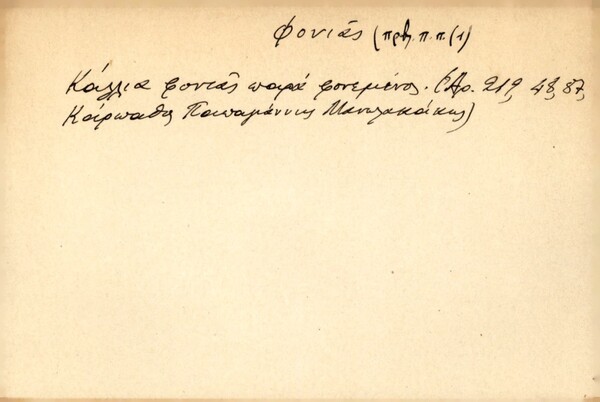 φονιᾶς (πρβ. π.π. (1)
Κάλλια φονιᾶς παρά φονεμένος. (Ἀρ. 219, 48, 87,
Κάρπαθος Παπαγιάννης Μανωλακάκης)